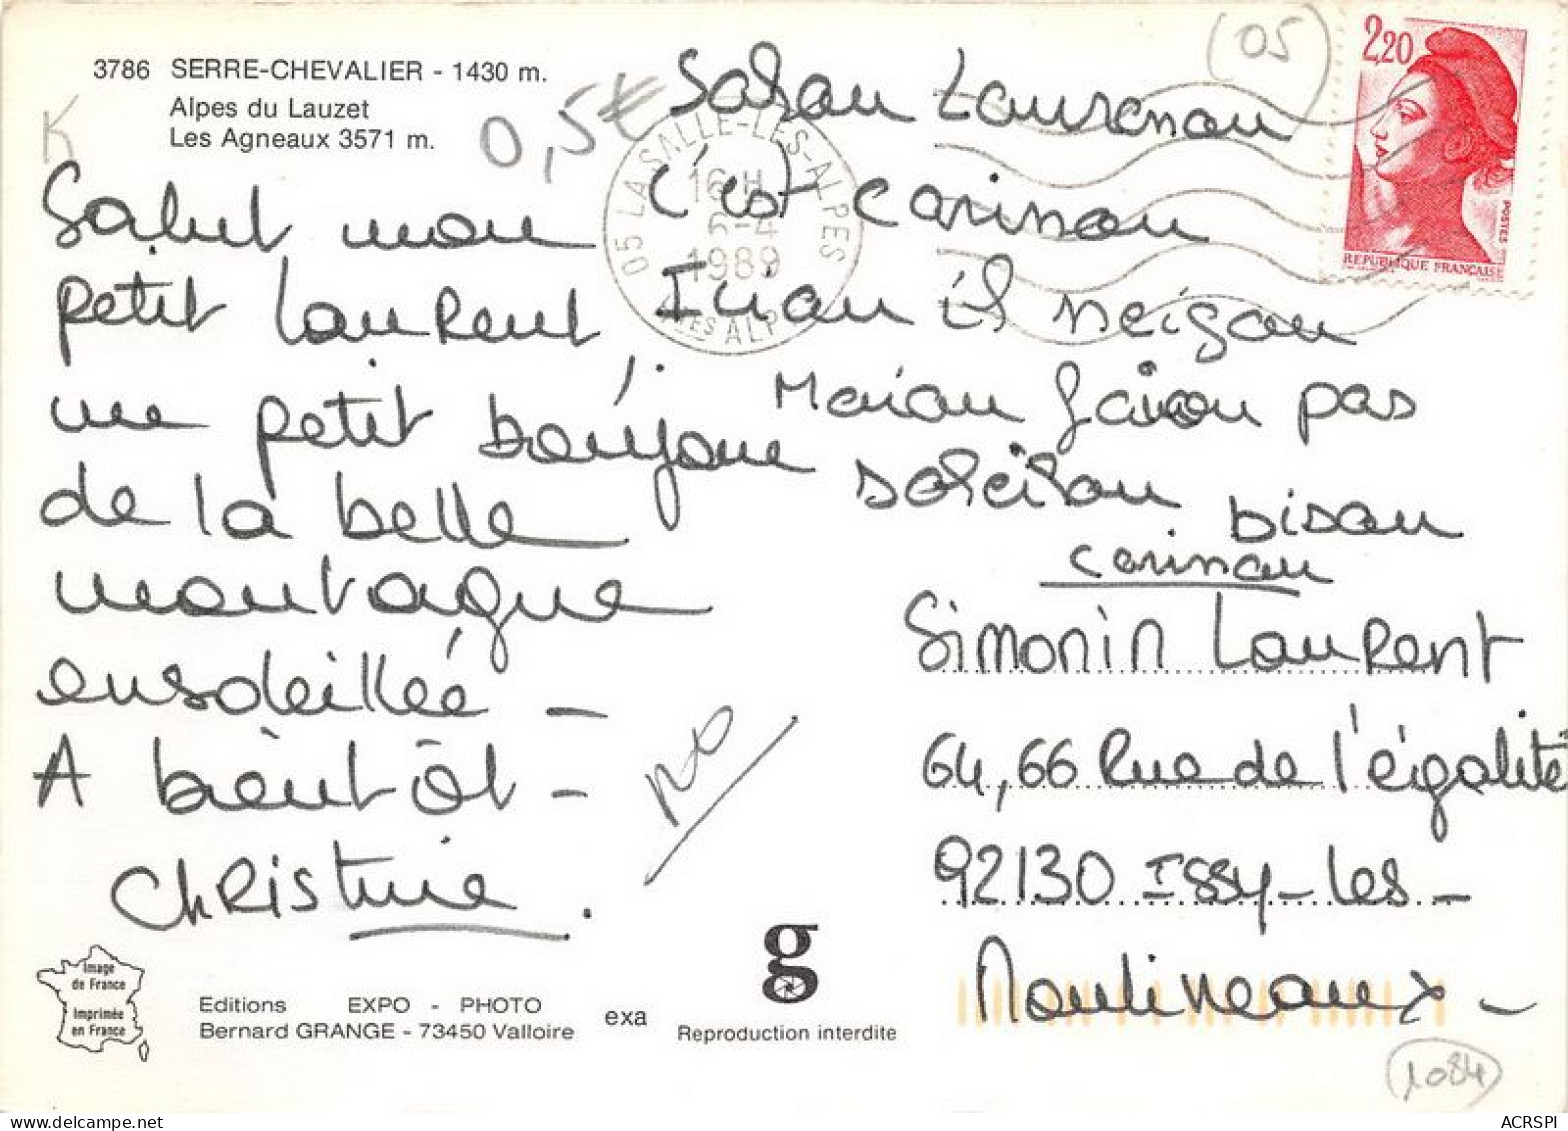 3786 SERRE-CHEVALIER - 1430 m.
Alpes du Lauzet
Les Agneaux 3571 m.
K
0,5€
(05)
2,20
POSTES
REPUBLIQUE FRANÇAISE
05 LA SALLE-LES-ALPES
16 H
6-4
1989
HTES ALPES
Salut mon
petit Laurent,
une petit bonjour
de la belle
montagne
ensoleillée -
A bientôt -
Christine.
Salou Laurenou
c'est carinou
Iciou il neigou
Maiou faisou pas
soleilou bisou
carinou
Simonin Laurent
64, 66 Rue de l'égalité
92130 Issy-les-
Moulineaux -
no
Image
de France
Imprimée
en France
Editions EXPO - PHOTO
Bernard GRANGE - 73450 Valloire
exa
g
Reproduction interdite
1084
delcampe.net
ACRSPI